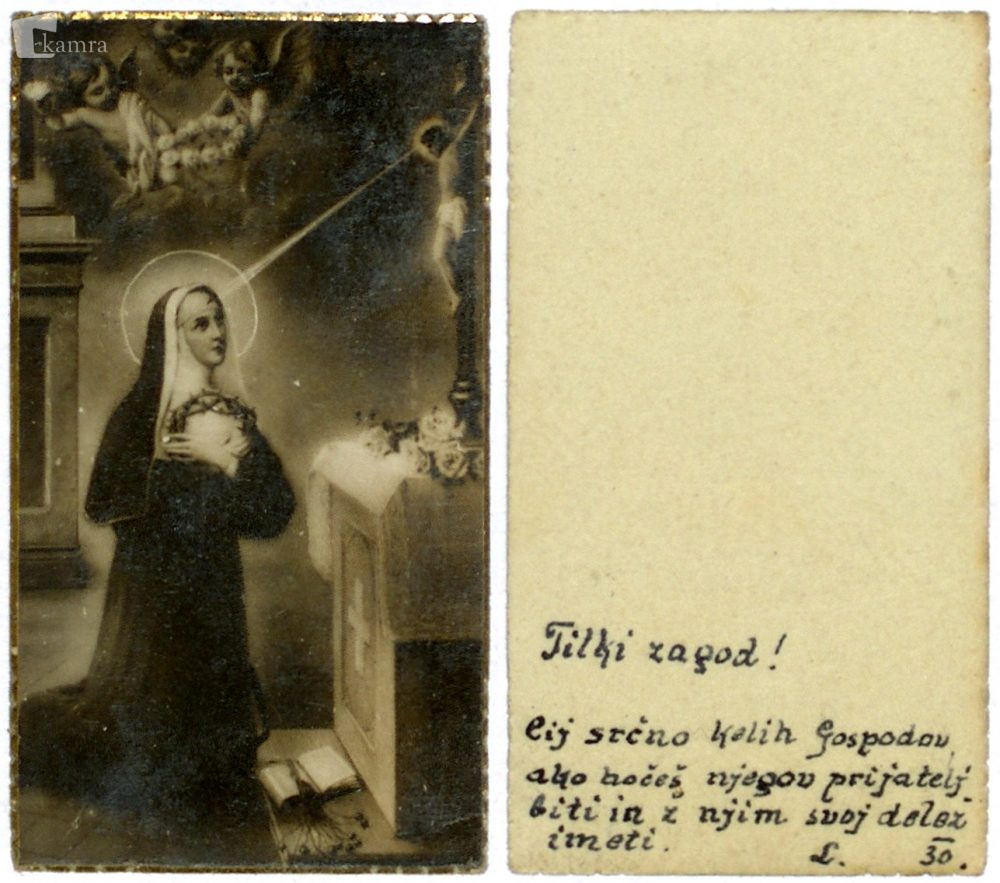 kamra
Tilki za god!
Pij srčno kelih Gospodov,
ako hočeš njegov prijatelj
biti in z njim svoj delež
imeti.
L. 30.